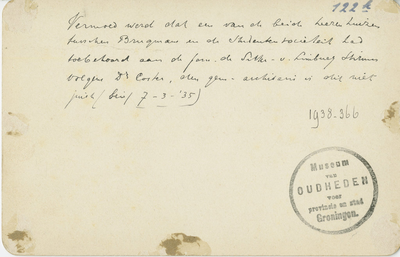 122k
Vermoed werd dat een van de beide heerenhuizen
tusschen Brugman en de Studentensocieteit had
toebehoord aan de fam. de Sitter - v. Limburg Stirum
volgens Dr Coster, den gem- archivaris is dit niet
juist (brief 7-3-'35)
1938.366
Museum
van
OUDHEDEN
voor
provincie en stad
Groningen.